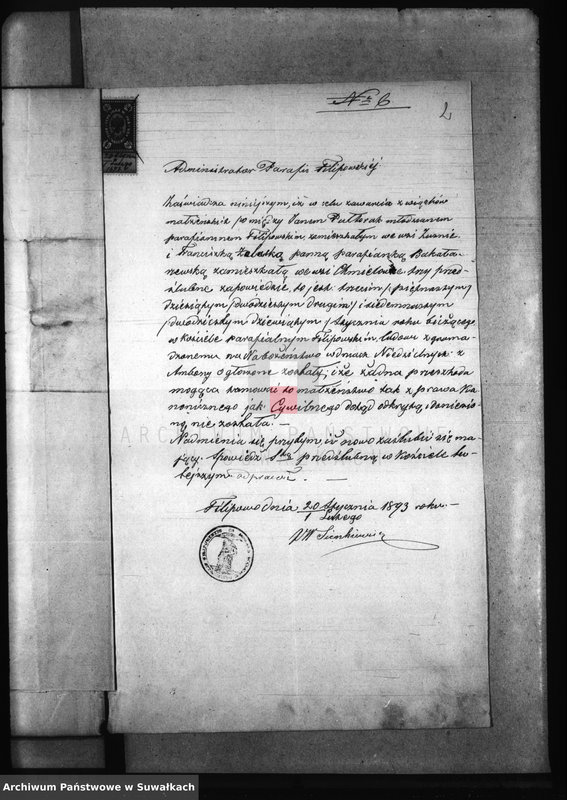 № 6
2
Administrator Parafii Filipowskiej
Zaświadcza niniejszym, iż w celu zawarcia związków
małżeńskich pomiędzy Janem Putkorak młodzianem
parafianinem Filipowskim, zamieszkałym we wsi
i Franciszką Zaleską panną parafianką Bakała-
rzewską zamieszkałą we wsi Chmielówce trzy przed-
ślubne zapowiedzie, to jest: trzecim / piętnastym /
dziesiątym / dwudziestym drugim / i siedemnastym
/ dwudziestym dziewiątym / stycznia roku bieżącego
w kościele parafialnym Filipowskim, ludowi zgroma-
dzonemu na Nabożeństwo w dniach Niedzielnych z
Ambony ogłoszone zostały, i że żadna przeszkoda
mogąca tamować to małżeństwo tak z prawa Ka-
nonicznego jak Cywilnego dotąd odkrytą i doniesio-
ną nie została. —
Nadmienia się przytem iż nowo zaślubić się ma-
jący Spowiedź Stą przedślubną w Kościele tu-
tejszym odprawili. —
Filipowo dnia 20 Stycznia 1893 roku —
1 Lutego
Sienkiewicz
ARCHIWUM PAŃSTWOWE
Archiwum Państwowe w Suwałkach